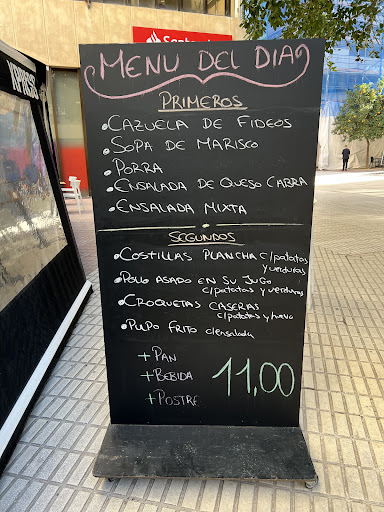 Santander
XPRESS
MENU DEL DIA
PRIMEROS
• CAZUELA DE FIDEOS
• SOPA DE MARISCO
• PORRA
• ENSALADA DE QUESO CABRA
• ENSALADA MIXTA
SEGUNDOS
• COSTILLAS PLANCHA c/patatas
y verduras
• POLLO ASADO EN SU JUGO
c/patatas y verduras
• CROQUETAS CASERAS
c/patatas y huevo
• PULPO FRITO c/ensalada
+ PAN
+ BEBIDA
+ POSTRE
11,00